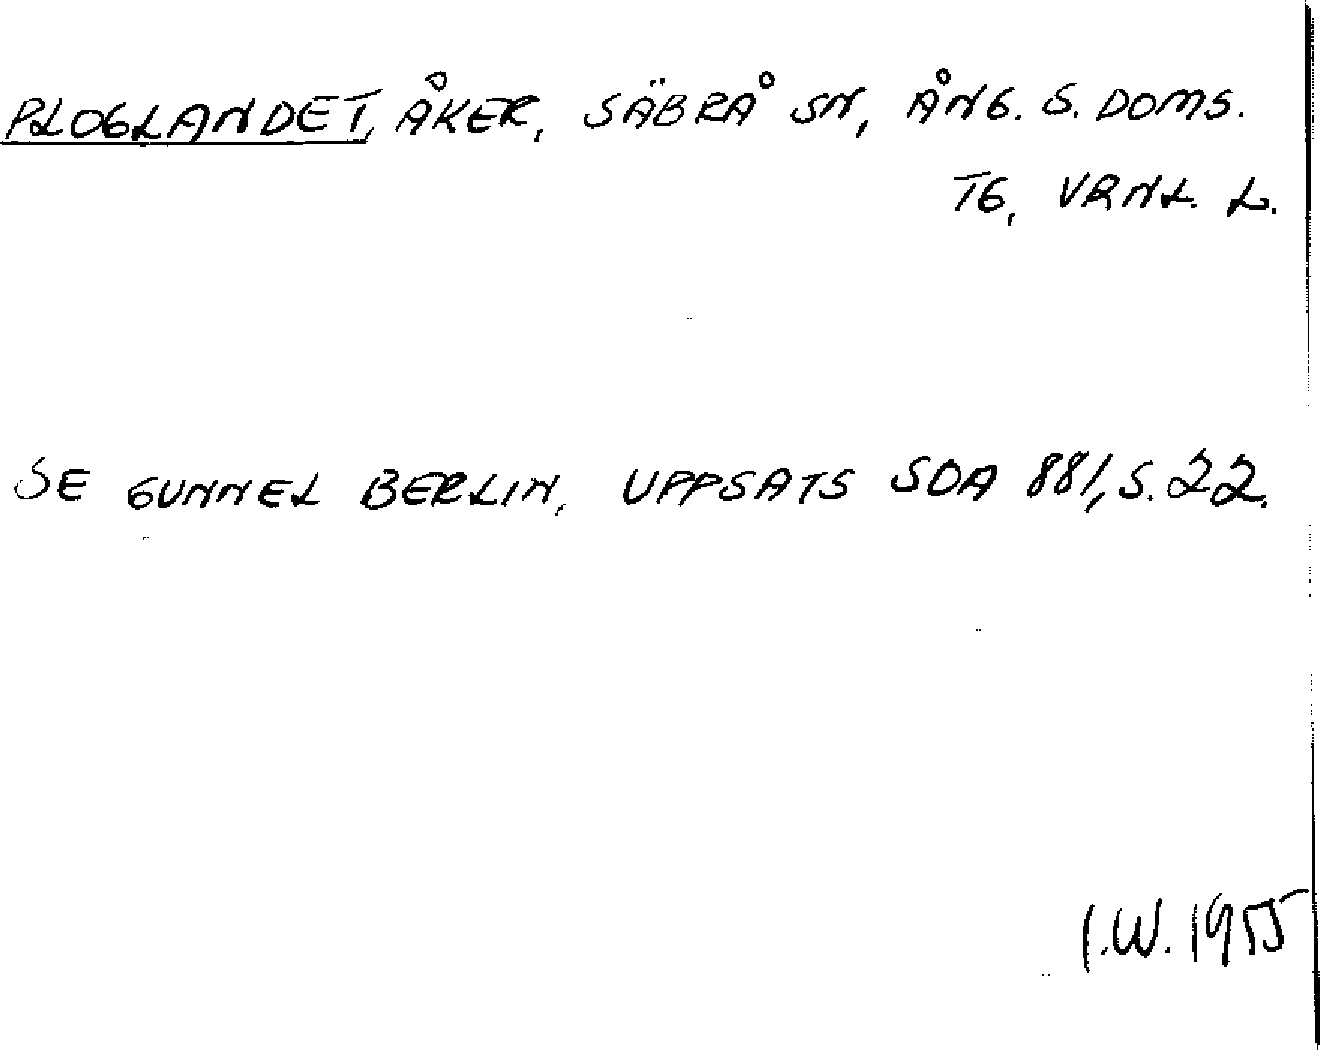 PLOGLANDET, ÅKER, SÄBRÅ SN, ÅNG. S. DOMS.
TG, VRNL. L.
SE GUNNEL BERLIN, UPPSATS SOA 881, S. 22.
I.W. 1955